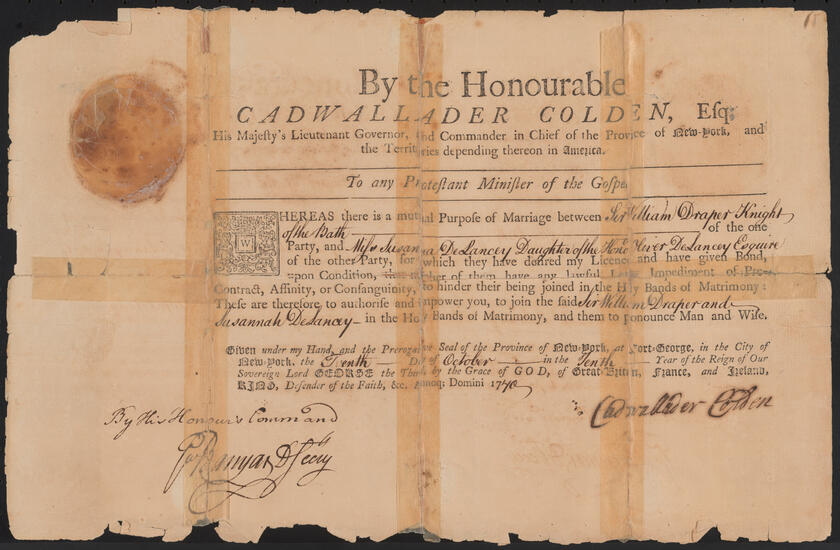 By the Honourable
CADWALLADER COLDEN, Esq;
His Majesty's Lieutenant Governor, and Commander in Chief of the Province of New-York, and
the Territories depending thereon in America.
To any Protestant Minister of the Gospel
WHEREAS there is a mutual Purpose of Marriage between Sir William Draper Knight
of the Bath of the one
Party, and Miss Susanna DeLancey Daughter of the Honble Oliver DeLancey Esquire
of the other Party, for which they have desired my Licence and have given Bond,
upon Condition, that neither of them have any lawful Impediment of Pre-
Contract, Affinity, or Consanguinity, to hinder their being joined in the Holy Bands of Matrimony:
These are therefore to authorise and impower you, to join the said Sir William Draper and
Susannah DeLancey in the Holy Bands of Matrimony, and them to pronounce Man and Wife.
Given under my Hand, and the Prerogative Seal of the Province of New-York, at Fort-George, in the City of
New-York, the Tenth Day of October in the Tenth Year of the Reign of Our
Sovereign Lord GEORGE the Third by the Grace of GOD, of Great-Britain, France, and Ireland,
KING, Defender of the Faith, &c. Annoq; Domini 1770
Cadwallader Colden
By His Honour's Command
Banyar D Secry